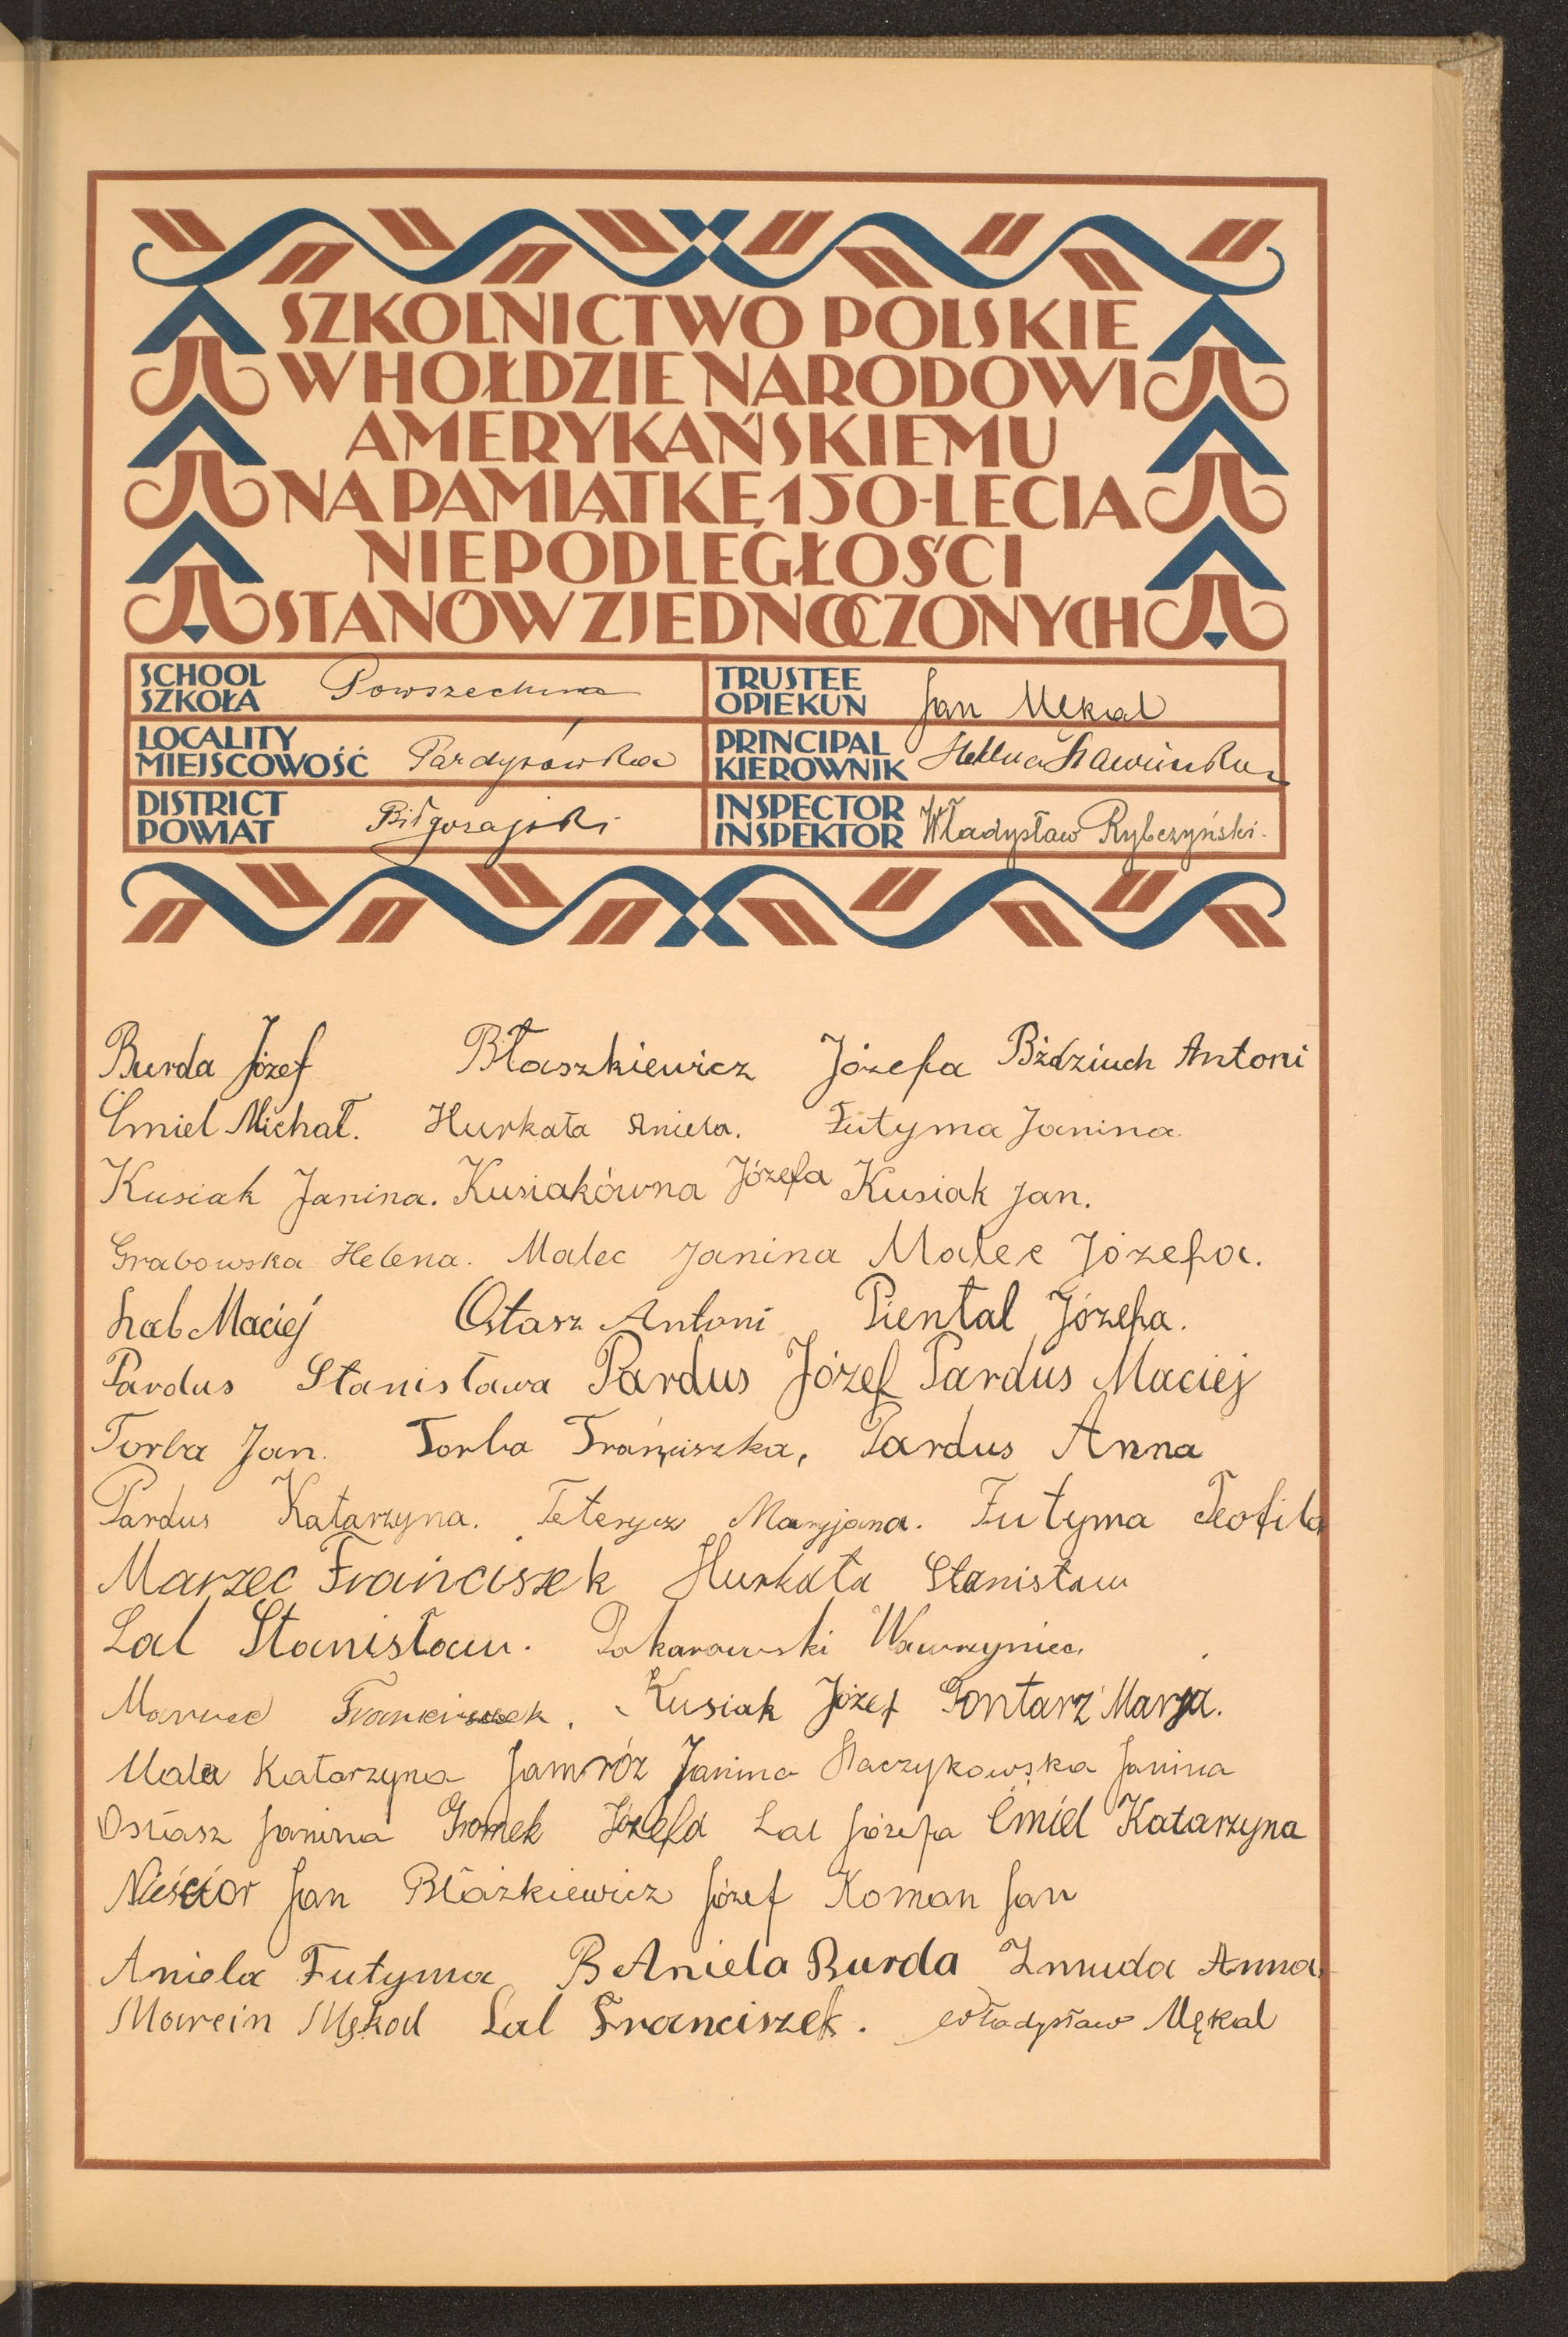 SZKOLNICTWO POLSKIE
W HOŁDZIE NARODOWI
AMERYKAŃSKIEMU
NA PAMIĄTKĘ 150-LECIA
NIEPODLEGŁOŚCI
STANÓW ZJEDNOCZONYCH
SCHOOL
SZKOŁA Powszechna
TRUSTEE
OPIEKUN Jan Mękal
LOCALITY
MIEJSCOWOŚĆ Pardysówka
PRINCIPAL
KIEROWNIK Helena
DISTRICT
POWIAT Biłgorajski
INSPECTOR
INSPEKTOR Władysław Rybczyński.
Burda Józef Błaszkiewicz Józefa Bździuch Antoni
Ćmiel Michał. Hurkała Aniela. Futyma Janina
Kusiak Janina. Kusiakówna Józefa Kusiak Jan.
Grabowska Helena. Malec Janina Malec Józefa.
Łal Maciej Ostasz Antoni Piental Józefa.
Pardus Stanisława Pardus Józef Pardus Maciej
Torba Jan. Torba Franciszka, Pardus Anna
Pardus Katarzyna. Teterycz Maryjana. Futyma Teofila
Marzec Franciszek Hurkała Stanisław
Lal Stanisław. Pokarowski Wawrzyniec
Marzec Franciszek. Kusiak Józef Gontarz Marja.
Katarzyna Jamróz Janina Raczykowska Janina
Ostasz Janina Gromek Józefa Lal Józefa Ćmiel Katarzyna
Nieścior Jan Błażkiewicz Józef Koman Jan
Aniela Futyma B Aniela Burda Zmuda Anna.
Marcin Mękal Lal Franciszek. Władysław Mękal